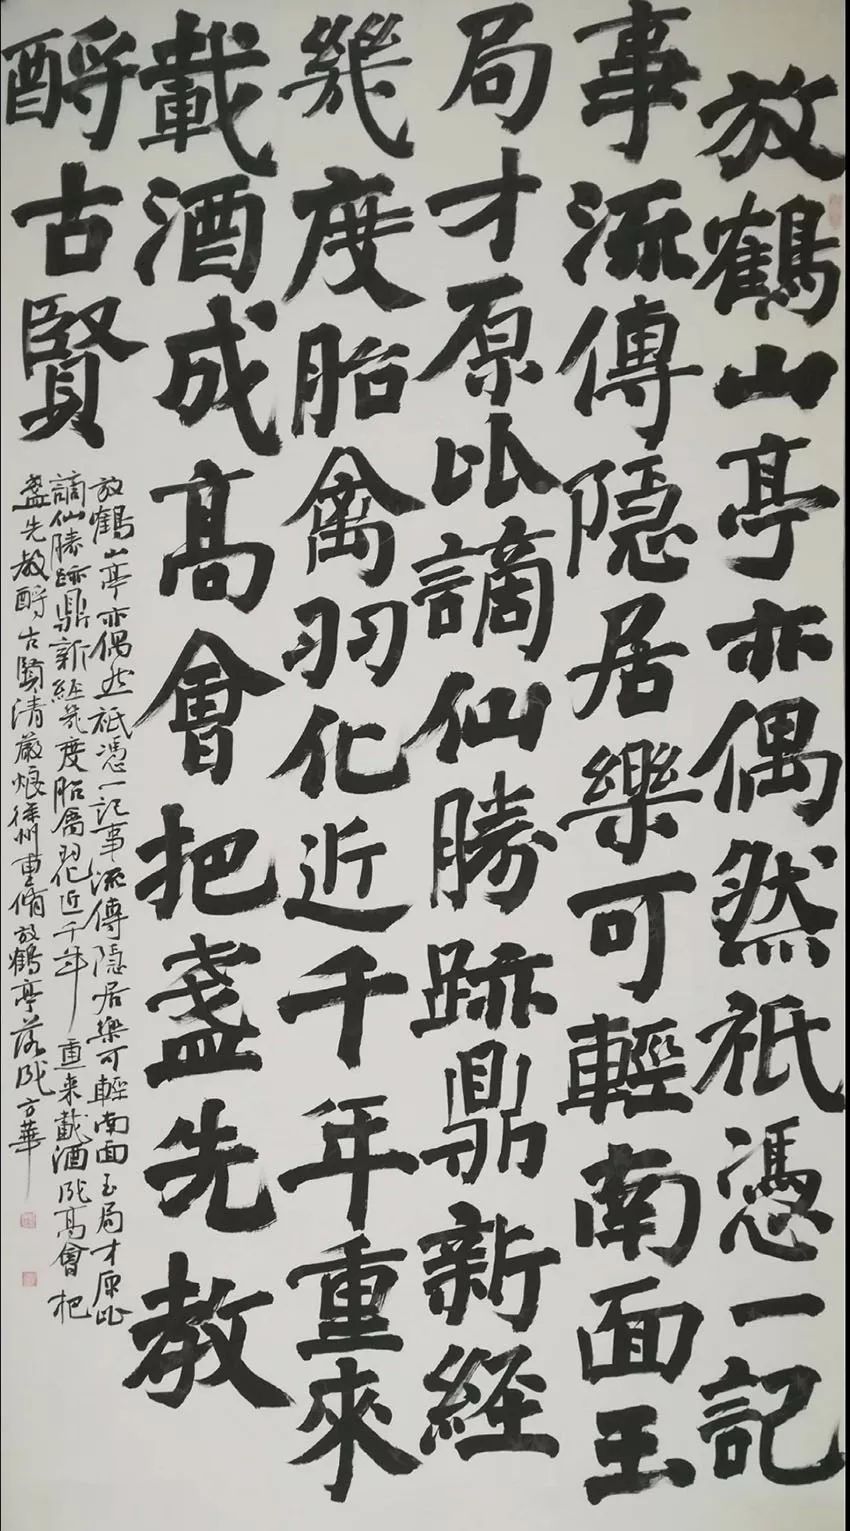 放鶴山亭亦偶然祇憑一記
事流傳隱居樂可輕南面玉
局才原比謫仙勝跡鼎新經
幾度胎禽羽化近千年重來
載酒成高會把盞先教
酹古賢
放鶴山亭亦偶然祇憑一記事流傳隱居樂可輕南面玉局才原比
謫仙勝跡鼎新經幾度胎禽羽化近千年重来載酒成高會把
盞先教酹古賢清嚴烺徐州重脩放鶴亭落成方華